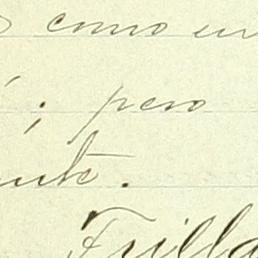 como un
; pero
ente.
Trilla